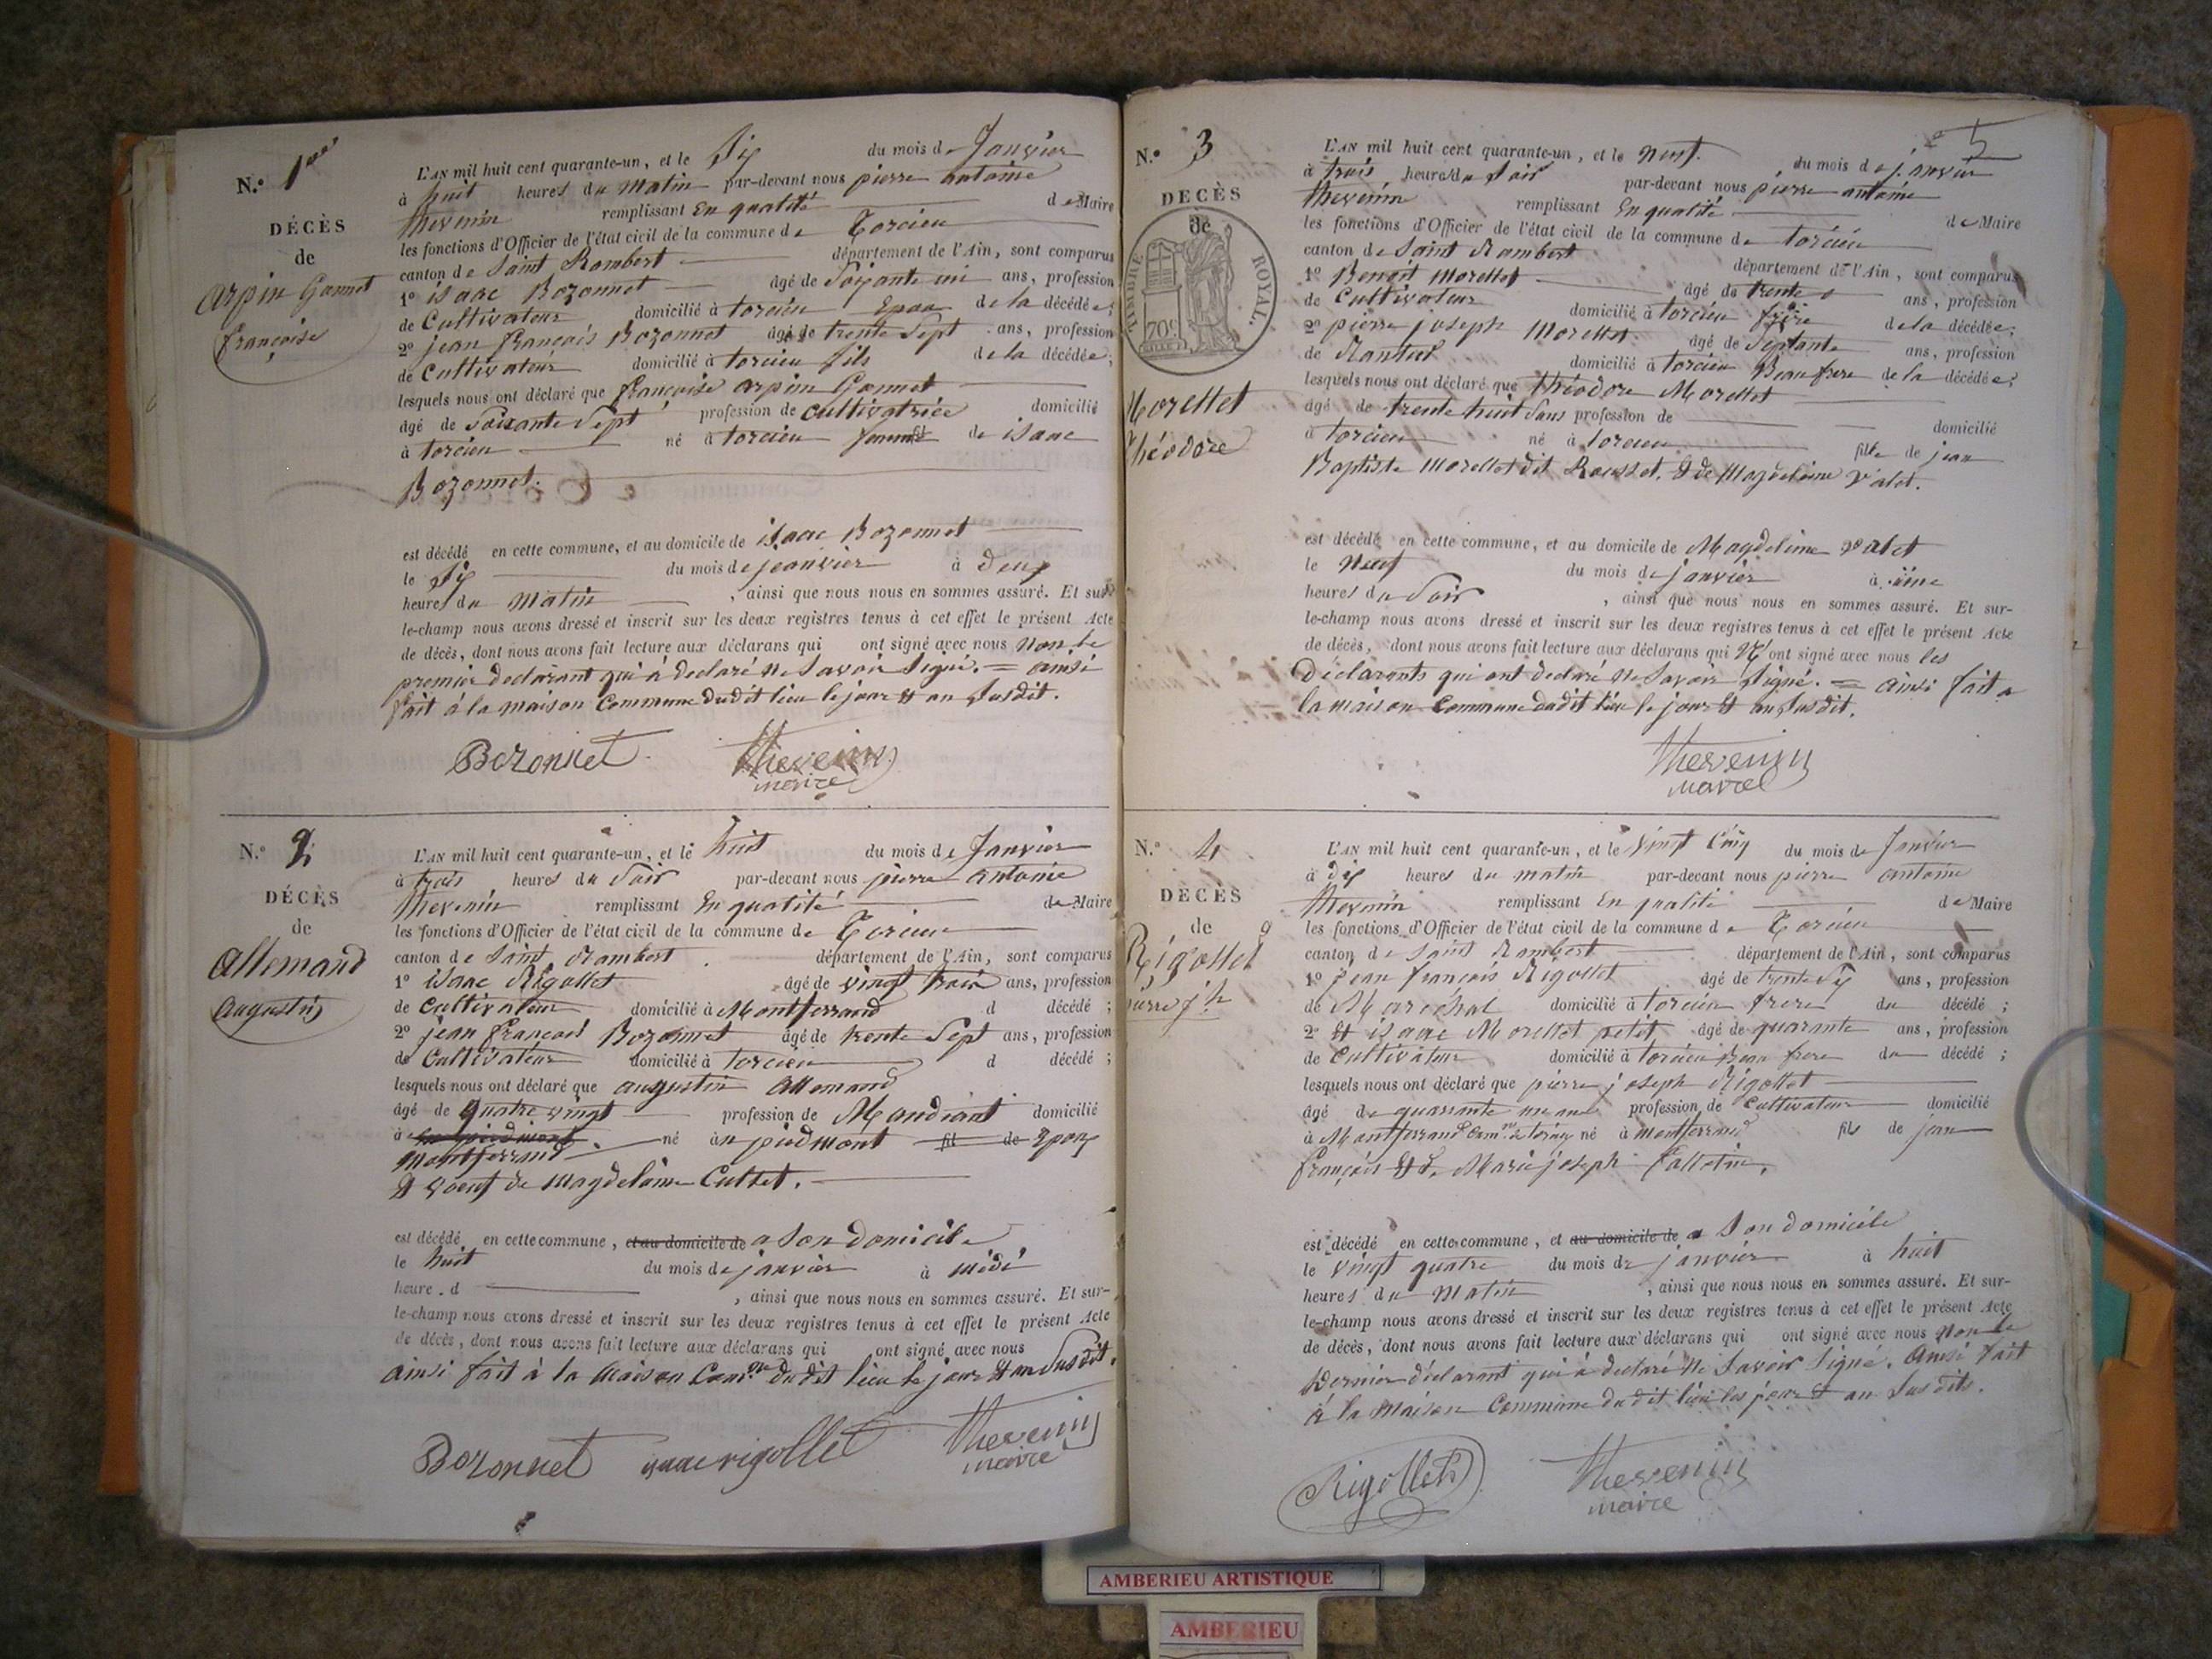 N.º 1er
DÉCÈS
de
Arpin Gonnet
françoise
L'AN mil huit cent quarante-un, et le Six du mois de Janvier
à huit heures du Matin par-devant nous pierre antoine
thevenin remplissant En qualité de Maire
les fonctions d'Officier de l'état civil de la commune de Torcieu
canton de Saint Rambert département de l'Ain, sont comparus
1º isaac Bozonnet âgé de Soixante un ans, profession
de Cultivateur domicilié à torcieu Epoux de la décédée;
2º jean françois Bozonnet âgé de trente Sept ans, profession
de Cultivateur domicilié à torcieu fils de la décédée;
lesquels nous ont déclaré que françoise arpin Gonnet
âgé de Soixante Sept profession de Cultivatrice domicilié
à torcieu né à torcieu femme de isaac
Bozonnet.
est décédé en cette commune, et au domicile de isaac Bozonnet
le Six du mois de jeanvier à deux
heures du Matin, ainsi que nous nous en sommes assuré. Et sur-
le-champ nous avons dressé et inscrit sur les deux registres tenus à cet effet le présent Acte
de décès, dont nous avons fait lecture aux déclarans qui ont signé avec nous Non le
premier declarant qui à declaré Ne Savoir Signé. = ainsi
fait à la maison Commune dudit lieu le jour & an Susdit.
Bozonnet Thevenin
maire
N.º 2
DÉCÈS
de
Allemand
Augustin
L'AN mil huit cent quarante-un, et le huit du mois de Janvier
à trois heures du Soir par-devant nous pierre antoine
thevenin remplissant En qualité de Maire
les fonctions d'Officier de l'état civil de la commune de Torcieu
canton de Saint Rambert département de l'Ain, sont comparus
1º isaac Rigollet âgé de vingt trois ans, profession
de Cultivateur domicilié à Montferrand d décédé;
2º jean françois Bozonnet âgé de trente Sept ans, profession
de Cultivateur domicilié à torcieu d décédé;
lesquels nous ont déclaré que augustin allemand
âgé de Quatre vingt profession de Mandiant domicilié
à en piedmont né àn piedmont fil de Epoux
Montferrand
& Voeuf de Magdelaine Cuttet.
est décédé en cette commune, et au domicile de a Son domicile
le huit du mois de janvier à Midi
heure d, ainsi que nous nous en sommes assuré. Et sur-
le-champ nous avons dressé et inscrit sur les deux registres tenus à cet effet le présent Acte
de décès, dont nous avons fait lecture aux déclarans qui ont signé avec nous
ainsi fait à la Maison Comne dudit lieu le jour & an Susdit.
Bozonnet isaac rigollet Thevenin
maire
5
N.º 3
DÉCÈS
de
TIMBRE ROYAL.
70c
Morettet
théodore
L'AN mil huit cent quarante-un, et le neuf du mois de janvier
à trois heures du Soir par-devant nous pierre antoine
thevenin remplissant En qualité de Maire
les fonctions d'Officier de l'état civil de la commune de torcieu
canton de Saint Rambert département de l'Ain, sont comparus
1º Benoit Morettet âgé de trente ans, profession
de Cultivateur domicilié à torcieu frère de la décédée;
2º pierre joseph Morettet âgé de Septante ans, profession
de domicilié à torcieu Beaufrere de la décédée;
lesquels nous ont déclaré que théodore Morettet
âgé de trente huit Sans profession de domicilié
à torcieu né à torcieu fille de jean
Baptiste Morettet dit Rousset, & de Magdelaine Valet.
est décédé en cette commune, et au domicile de Magdeleine Valet
le Neuf du mois de janvier à üne
heures du Soir, ainsi que nous nous en sommes assuré. Et sur-
le-champ nous avons dressé et inscrit sur les deux registres tenus à cet effet le présent Acte
de décès, dont nous avons fait lecture aux déclarans qui N'ont signé avec nous les
Déclarants qui ont declaré Ne Savoir Signé. = ainsi fait a
la maison Commune dudit lieu le jour & an Susdit.
Thevenin
maire
N.º 4
DÉCÈS
de
Rigollet
pierre jh
L'AN mil huit cent quarante-un, et le vingt Cinq du mois de Janvier
à dix heures du matin par-devant nous pierre antoine
thevenin remplissant En qualité de Maire
les fonctions d'Officier de l'état civil de la commune de Torcieu
canton de Saint Rambert département de l'Ain, sont comparus
1º jean françois Rigollet âgé de trente Six ans, profession
de Maréchal domicilié à torcieu frere du décédé;
2º & isaac Morettet petit âgé de quarante ans, profession
de Cultivateur domicilié à torcieu Beau frere du décédé;
lesquels nous ont déclaré que pierre joseph Rigollet
âgé de quarante un ans profession de Cultivateur domicilié
à Montferrand Comne de torcieu né à Montferrand fils de jean
françois & d. Marie joseph
est décédé en cette commune, et au domicile de a Son domicile
le vingt quatre du mois de janvier à huit
heures du Matin, ainsi que nous nous en sommes assuré. Et sur-
le-champ nous avons dressé et inscrit sur les deux registres tenus à cet effet le présent Acte
de décès, dont nous avons fait lecture aux déclarans qui ont signé avec nous Non le
Dernier déclarant qui à declaré Ne Savoir Signé. Ainsi fait
à la Maison Commune dudit lieu les jour & an Susdits.
Rigollet Thevenin
maire
AMBERIEU ARTISTIQUE
AMBERIEU